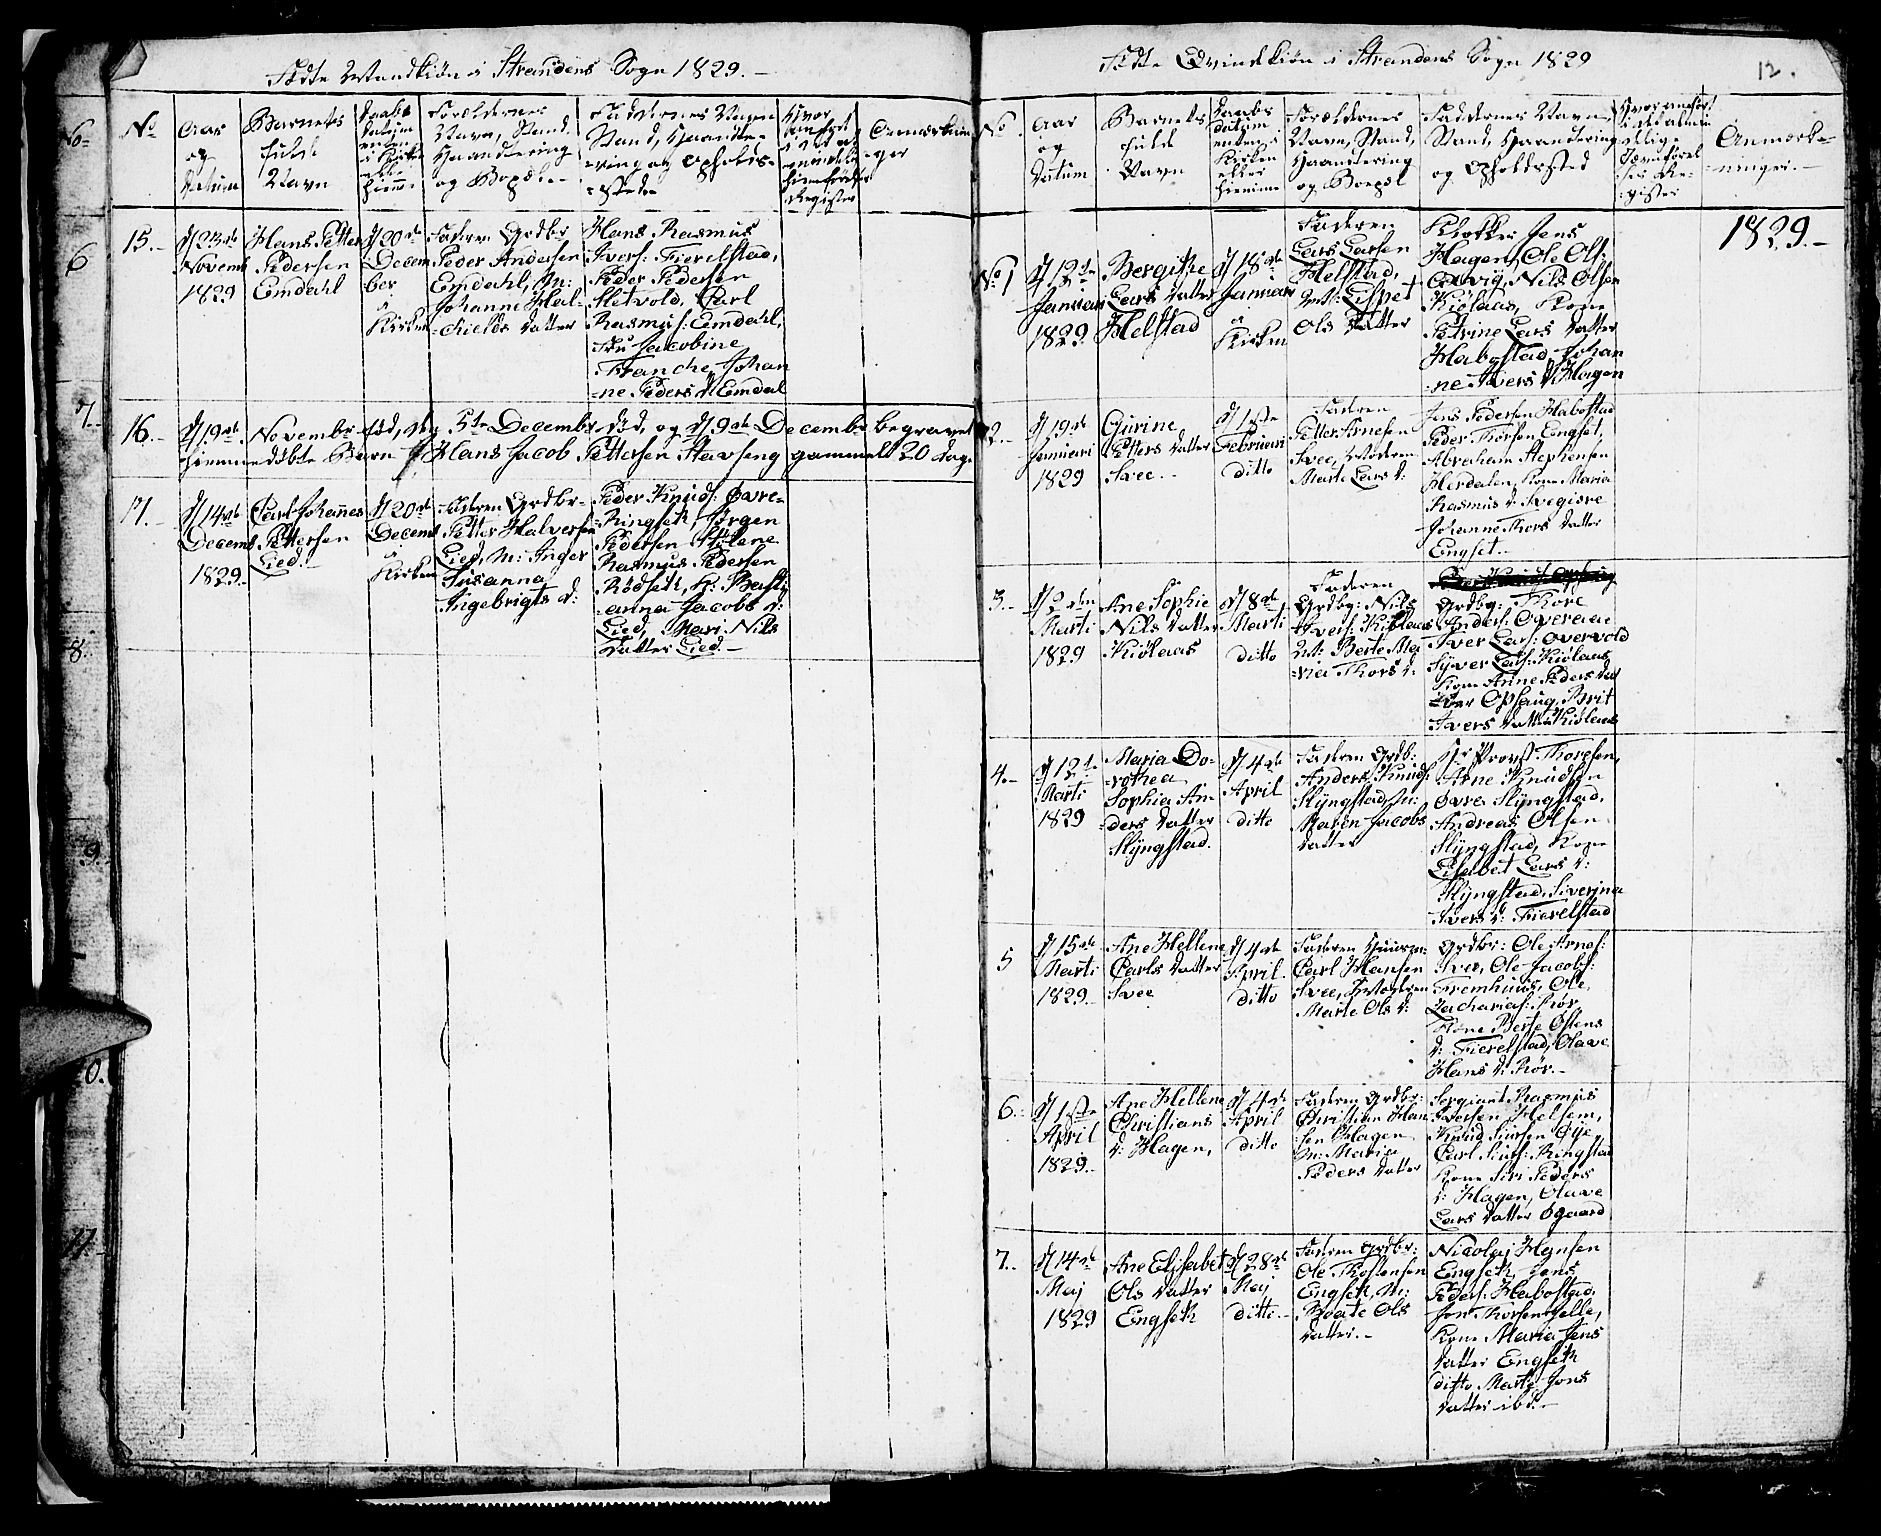 Fødte Mandkiøn i Strandens Sogn 1829.-
No
Aar
og
Datum
Barnets
fulde
Navn
Daabs
Datum
enten
i Kirken
eller
hiemme
Forældrenes
Navn, Stand,
Haandtering
og Bopæl.-
Faddernes Navn
Stand, Haandte-
-ring og Opholds-
-sted
Hvor
anført
i det al-
mindelige
Jevnførelses
Register
Anmærknin-
-ger
15.-
d 23de
Novemb
1829
Hans Petter
Pedersen
Emdahl
d 20de
Decem
ber
i
Kirken
Faderen Grdbr
Peder Andersen
Emdahl, M:
Johanne Hal-
-kields Datter
Hans Rasmus
Ivers: Fierelstad,
Peder Pedersen
Sletvold, Carl
Rasmus: Emdahl,
Fru Jacobine
Franche, Johan
-ne Peders D: Emdal
16.-
d 19de November fød, d 5te Decembr død, og d 9de Decembr begravet
hiemmedøbte Barn Hans Jacob Pettersen Stavseng gammel 20 Dage
17.-
d 14de
Decemb
1829.-
Carl Johannes
Pettersen
Lied.-
d 20de
Decemb
i
Kirken
Faderen Grdbr-
Petter Halversen
Lied, M: Inger
Susanna
Ingebrigts D:
Peder Knuds: Øvre-
-Ringseth, Jørgen
Pedersen
Rasmus Pedersen
Rødseth, K: Basti
-anna Jacobs D:
Lied, Mari Nils
Datter Lied.-
6
7.
8.
9.
10.
11.
Fødte Qvindekiøn i Strandens Sogn 1829
12.
No
Aar
og
Datum
Barnets
fulde
Navn
Daabs
Datum
enten i
Kirken
eller
hiemme
Forældrenes
Navn, Stand,
Haandtering
og Boepæl
Faddernes Navn,
Stand, Haandtering
og Opholdssted
Hvor anført
i det almin
delige
Jævnførel
ses Re-
gister
Anmærk-
-ninger.-
1829.-
No 1
d 12te
Januari
1829.
Bergithe
Lars Datter
Helstad
d 18de
Januari
i
Kirken
Faderen
Lars Larsen
Helstad,
M: Lispet
Ols Datter
Klokker Jens
Hagen, Ole Ols:
Nils Olsen
Kiølaas, Kone
Petrine Lars Datter
Habostad, Johan
-ne Ivers D: Hagen
2.-
d 19de
Januari
1829
Gurine
Petters Datter
Svee.-
d 1ste
Februari
ditto
Faderen
Petter Arnesen
Svee, Moderen
Marte Lars D:
Jens Pedersen Habostad
Peder Thorsen Engset,
Abraham Stephensen
Herdalen, Kone Maria
Rasmus D: Svegiøre
Johanne Thors Datter
Engset.-
3.-
d 2den
Marti
1829
Ane Sophie
Nils Datter
Kiølaas
d 8de
Marti
ditto
Faderen
Grdbr: Nils
Ivers: Kiølaas
M: Berte Ma
-ria Thors D:
Grdbr: Thore
Anders: Øvereaae
Iver Lars: Overvold
Syver Lars: Kiølaas
Kone Anne Peders Dat
ter Opshaug, Brit
Ivers Datter Kiølaas
4.-
d 12te
Marti
1829
Maria Do-
-rothea
Sophia An-
-ders Datter
Slyngstad.
d 4de
April
ditto
Faderen Grdb:
Anders Knuds:
Slyngstad, M:
Maren Jacobs
Datter
Hr Provst Thoresen,
Arne Knudsen
Øvre Slyngstad,
Andreas Olsen
Slyngstad, Kone
Elisabet Lars D:
Slyngstad, Siverina
Ivers D: Fierelstad
5
d 15de
Marti
1829.-
Ane Hellene
Carls Datter
Svee
d 4de
April.
ditto
Faderen Huusm:
Carl Hansen
Svee, Moderen
Marte Ols D:
Grdbr: Ole Arnes:
Svee, Ole Jacobs:
Fremhuus, Ole
Zacharias: Rør
Kone Berte Østens
D: Fierelstad, Olave
Hans D: Rør.-
6.-
d 1ste
April
1829.-
Ane Hellene
Christians
D: Hagen,
d 4de
April
ditto
Faderen Grdbr:
Christian Han
sen Hagen
M: Maria
Peders Datter
Sergiant Rasmus
Iversen Helsem,
Knud Siursen Øye
Carl Siurs: Ringstad
Kone Siri Peders
D: Hagen, Olave
Lars Datter Øgaard
7.-
d 14de
Maj
1829
Ane Elisabet
Ols Datter
Engseth
d 28de
Maj
ditto.-
Faderen Grdbr:
Ole Thostensen
Engseth, M:
Beate Ols
Datter.-
Nicolaj Hansen
Engseth, Jens
Peders: Habostad,
Jon Thorsen Gelle,
Kone Maria Jens
Datter Engseth
ditto Marte Jons
Datter ibd.-